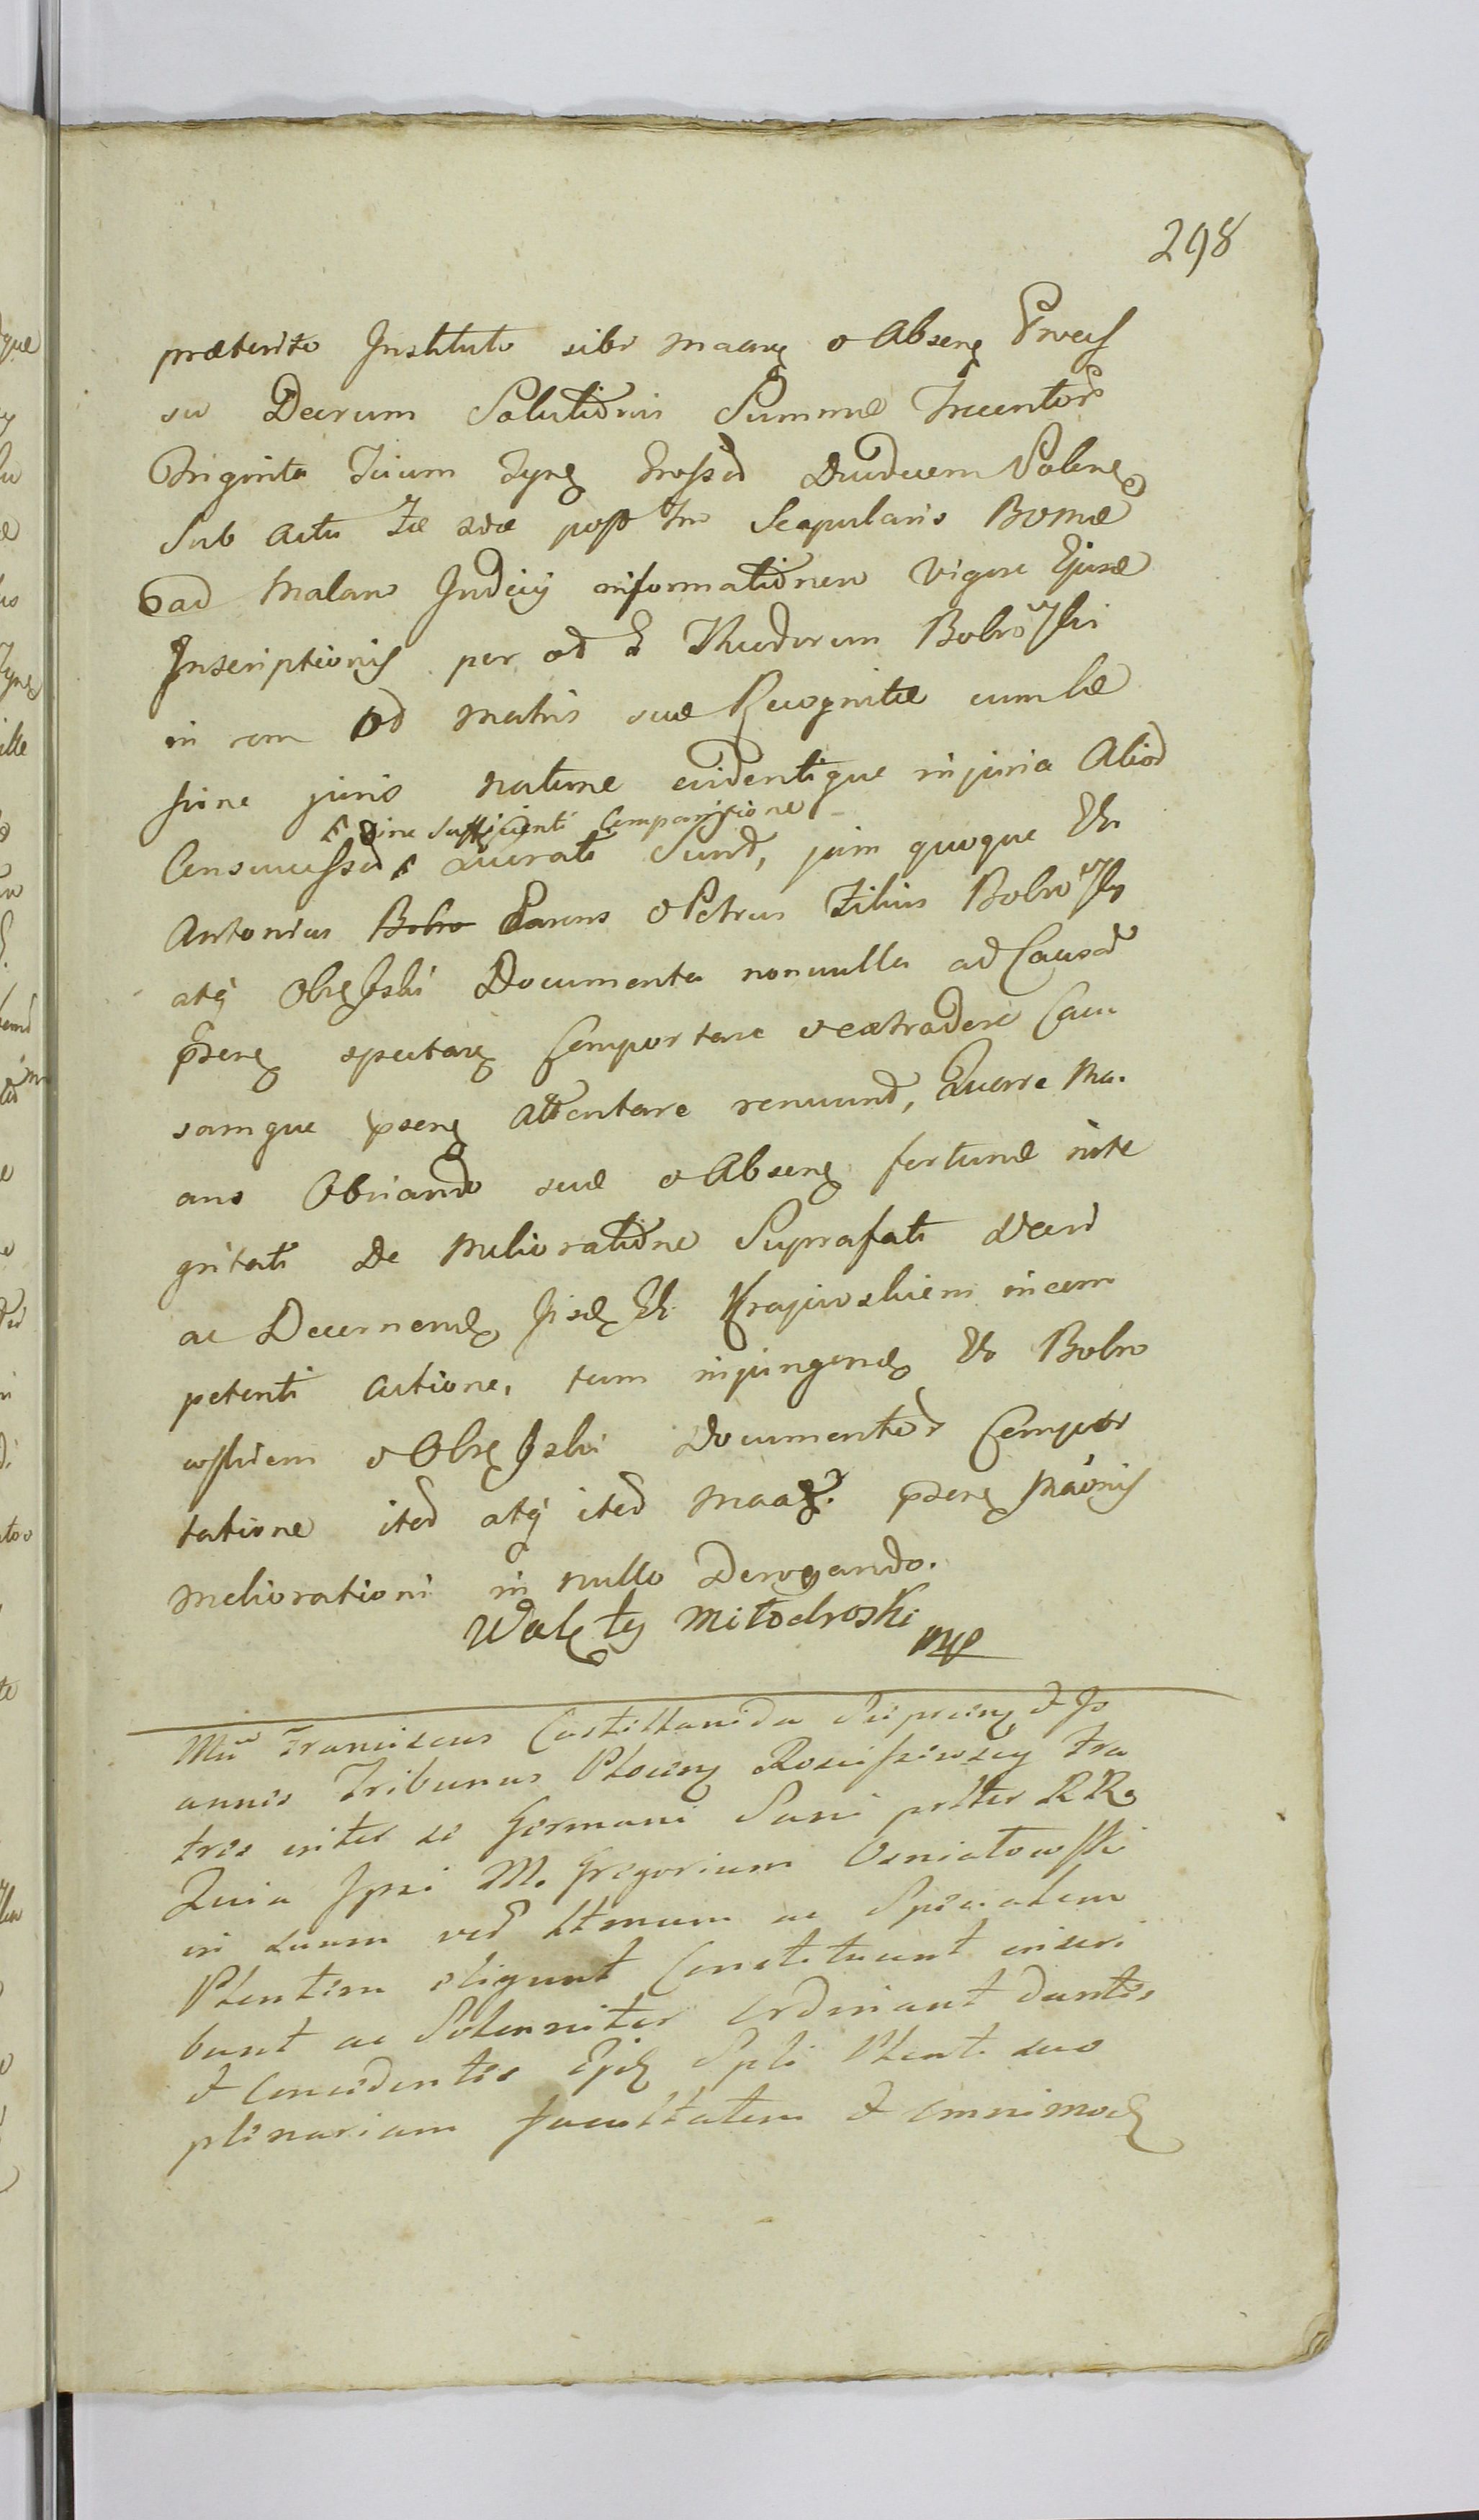 298
præterito Instituto sibi Maan o Absen Proces
su Decrum Solutionis Summæ Trecentor
Triginta Trium Tyn Grossor Duodecem Polon
Sub actu Fæ 2dæ post Fm Scapularis Romæ
ad Malam Judicy informationem vigore Ejusd
Inscriptionis per od G Theodorum Bobrowski
in rem od Matris suæ Recognitæ cum læ
sione juris naturæ evidentique injuria Aliod
sine sufficienti Comparitione
Consuccessor Lucrati Sund, jam quoque Gli
Antonius Bobro Parens o Petrus Filius Bobrowsky
atq Obrębski Documenta nonnulla ad Causam
psen spectan Comportare o extradere Cau
samque psen Attentare renuund, Quare Ma.
ans Obviando suæ o Absen fortunæ inte
gritati de Melioratione Suprafati
ac Decernend Ijsd Gli Krajewskiem in com
petenti actione, tum injungend Glo Bobro
wskiem o Obrębski Documentor Compor
tatione ited atq ited Maan. psen Maonis
meliorationi in nullo Derogando.
Walęty Miłodroski mp
Mci Franciscus Castellanida Sierpcen & Jo
annes Tribunus Plocen Rosciszewscy Fra
tres inter se Germani Sani prlter RR.
Quia Ipsi M. Gregorium Osniałowski
in suum verd lttmum ac Specialem
Plentem eligunt Constituunt inscri
bunt ac Solenniter Ordinant dantes
& Concedentes Ejd Spli Plenti suo
plenariam facultatem & omnimod